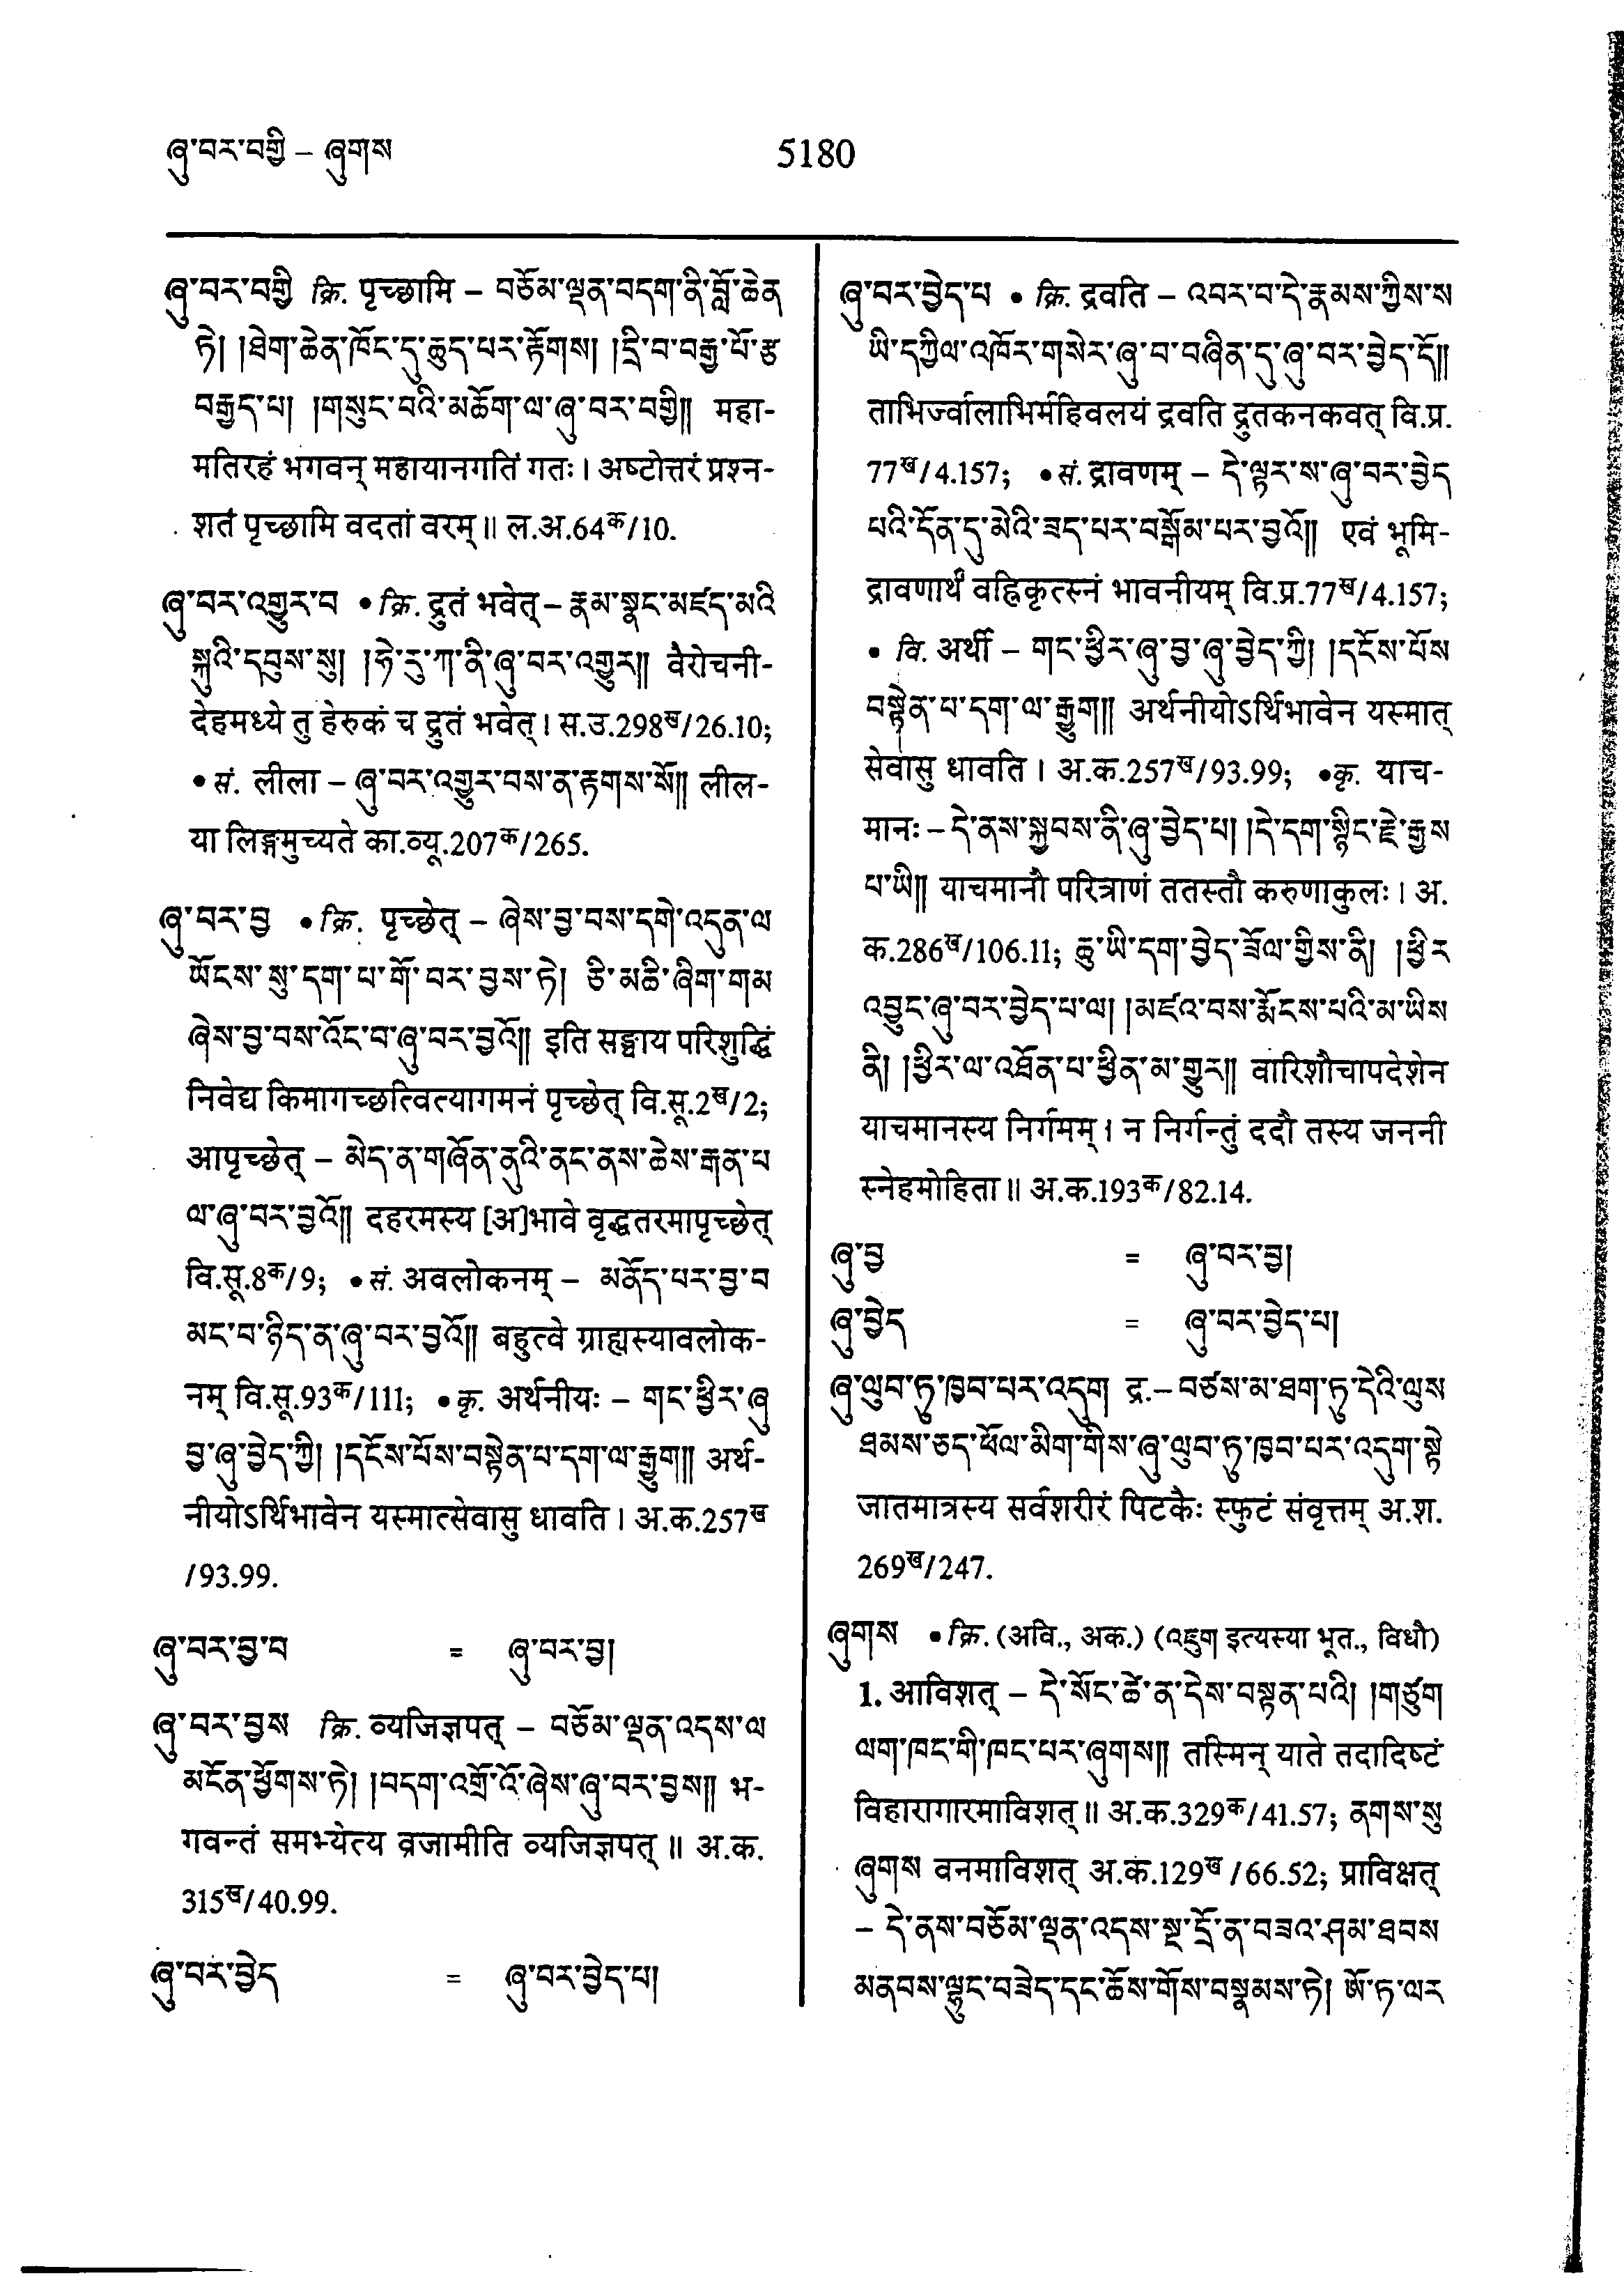 ཞུ་བར་བགྱི – ཞུགས
5180
ཞུ་བར་བགྱི क्रि. पृच्छामि – བཅོམ་ལྡན་བདག་ནི་བློ་ཆེན
ཏེ། །ཐེག་ཆེན་ཁོང་དུ་ཆུད་པར་རྟོགས། །དྲི་བ་བརྒྱ་པོ་རྩ
བརྒྱད་པ། །གསུང་བའི་མཆོག་ལ་ཞུ་བར་བགྱི།། महा-
मतिरहं भगवन् महायानगतिं गतः । अष्टोत्तरं प्रश्न-
शतं पृच्छामि वदतां वरम् ॥ ल.अ.64क/10.
ཞུ་བར་འགྱུར་བ • क्रि. द्रुतं भवेत् – རྣམ་སྣང་མཛད་མའི
སྐུའི་དབུས་སུ། །ཧེ་རུ་ཀ་ནི་ཞུ་བར་འགྱུར།། वैरोचनी-
देहमध्ये तु हेरुकं च द्रुतं भवेत् । स.उ.298ख/26.10;
• सं. लीला – ཞུ་བར་འགྱུར་བས་ན་རྟགས་སོ།། लील-
या लिङ्गमुच्यते का.व्यू.207क/265.
ཞུ་བར་བྱ • क्रि. पृच्छेत् – ཞེས་བྱ་བས་དགེ་འདུན་ལ
ཡོངས་སུ་དག་པ་གོ་བར་བྱས་ཏེ། ཅི་མཆི་ཞིག་གམ
ཞེས་བྱ་བས་འོང་བ་ཞུ་བར་བྱའོ།། इति सङ्घाय परिशुद्धिं
निवेद्य किमागच्छत्वित्यागमनं पृच्छेत् वि.सू.2ख/2;
आपृच्छेत् – མེད་ན་གཞོན་ནུའི་ནང་ནས་ཆེས་རྒན་པ
ལ་ཞུ་བར་བྱའོ།། दहरमस्य [अ]भावे वृद्धतरमापृच्छेत्
वि.सू.8क/9; • सं. अवलोकनम् – མནོད་པར་བྱ་བ
མང་བ་ཉིད་ན་ཞུ་བར་བྱའོ།། बहुत्वे ग्राह्यस्यावलोक-
नम् वि.सू.93क/111; • कृ. अर्थनीयः – གང་ཕྱིར་ཞུ
བྱ་ཞུ་བྱེད་ཀྱི། །དངོས་པོས་བསྟེན་པ་དག་ལ་རྒྱུག།། अर्थ-
नीयोऽर्थिभावेन यस्मात्सेवासु धावति । अ.क.257ख
/93.99.
ཞུ་བར་བྱ་བ = ཞུ་བར་བྱ།
ཞུ་བར་བྱས क्रि. व्यजिज्ञपत् – བཅོམ་ལྡན་འདས་ལ
མངོན་ཕྱོགས་ཏེ། །བདག་འགྲོ་འོ་ཞེས་ཞུ་བར་བྱས།། भ-
गवन्तं समभ्येत्य व्रजामीति व्यजिज्ञपत् ॥ अ.क.
315ख/40.99.
ཞུ་བར་བྱེད = ཞུ་བར་བྱེད་པ།
ཞུ་བར་བྱེད་པ • क्रि. द्रवति – འབར་བ་དེ་རྣམས་ཀྱིས་ས
ཡི་དཀྱིལ་འཁོར་གསེར་ཞུ་བ་བཞིན་དུ་ཞུ་བར་བྱེད་དོ།།
ताभिर्ज्वालाभिर्महिवलयं द्रवति द्रुतकनकवत् वि.प्र.
77ख/4.157; • सं. द्रावणम् – དེ་ལྟར་ས་ཞུ་བར་བྱེད
པའི་དོན་དུ་མེའི་ཟད་པར་བསྒོམ་པར་བྱའོ།། एवं भूमि-
द्रावणार्थं वह्निकृत्स्नं भावनीयम् वि.प्र.77ख/4.157;
• वि. अर्थी – གང་ཕྱིར་ཞུ་བྱ་ཞུ་བྱེད་ཀྱི། །དངོས་པོས
བསྟེན་པ་དག་ལ་རྒྱུག།། अर्थनीयोऽर्थिभावेन यस्मात्
सेवासु धावति । अ.क.257ख/93.99; • कृ. याच-
मानः – དེ་ནས་སྐྱབས་ནི་ཞུ་བྱེད་པ། །དེ་དག་སྙིང་རྗེ་རྒྱས
པ་ཡི།། याचमानौ परित्राणं ततस्तौ करुणाकुलः । अ.
क.286ख/106.11; ཆུ་ཡི་དག་བྱེད་ཟོལ་གྱིས་ནི། །ཕྱིར
འབྱུང་ཞུ་བར་བྱེད་པ་ལ། །མཛའ་བས་རྨོངས་པའི་མ་ཡིས
ནི། །ཕྱིར་ལ་འཐོན་པ་ཕྱིན་མ་གྱུར།། वारिशौचापदेशेन
याचमानस्य निर्गमम् । न निर्गन्तुं ददौ तस्य जननी
स्नेहमोहिता ॥ अ.क.193क/82.14.
ཞུ་བྱ = ཞུ་བར་བྱ།
ཞུ་བྱེད = ཞུ་བར་བྱེད་པ།
ཞུ་ལུབ་ཏུ་ཁྱབ་པར་འདུག द्र.– བཙས་མ་ཐག་ཏུ་དེའི་ལུས
ཐམས་ཅད་ཕོལ་མིག་གིས་ཞུ་ལུབ་ཏུ་ཁྱབ་པར་འདུག་སྟེ
जातमात्रस्य सर्वशरीरं पिटकैः स्फुटं संवृत्तम् अ.श.
269ख/247.
ཞུགས • क्रि. (अवि., अक.) (འཇུག इत्यस्या भूत., विधौ)
1. आविशत् – དེ་སོང་ཚེ་ན་དེས་བསྟན་པའི། །གཙུག
ལག་ཁང་གི་ཁང་པར་ཞུགས།། तस्मिन् याते तदादिष्टं
विहारागारमाविशत् ॥ अ.क.329क/41.57; ནགས་སུ
ཞུགས वनमाविशत् अ.क.129ख/66.52; प्राविक्षत्
– དེ་ནས་བཅོམ་ལྡན་འདས་སྔ་དྲོ་ན་བཟའ་ཤམ་ཐབས
མནབས་ལྷུང་བཟེད་དང་ཆོས་གོས་བསྣམས་ཏེ། ཨོ་ཏ་ལར